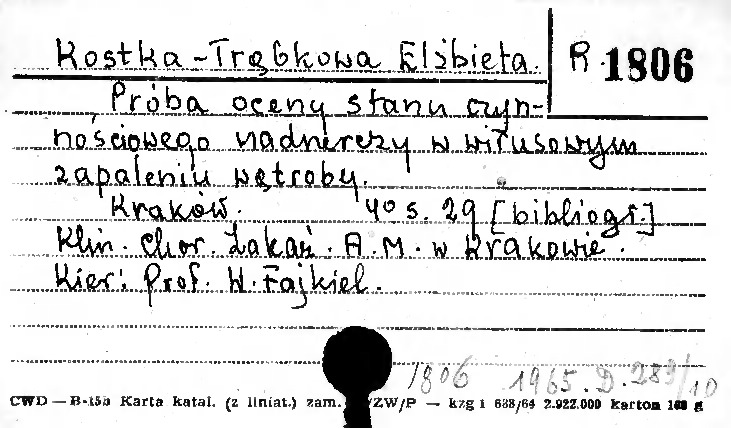 Kostka-Trąbkowa Elżbieta. R. 1806
Próba oceny stanu czyn-
nościowego nadnerczy w wirusowym
zapaleniu wątroby.
Kraków. 40 s. 29 [bibliogr.]
Klin. Chor. Zakaź. A.M. w Krakowie.
Kier: Prof. W. Fajkiel.
1806 1965.D.289/10
CWD — B-15b Karta katal. (z liniat.) zam. /ZW/P — kzg i 638/64 2.922.000 karton 160 g